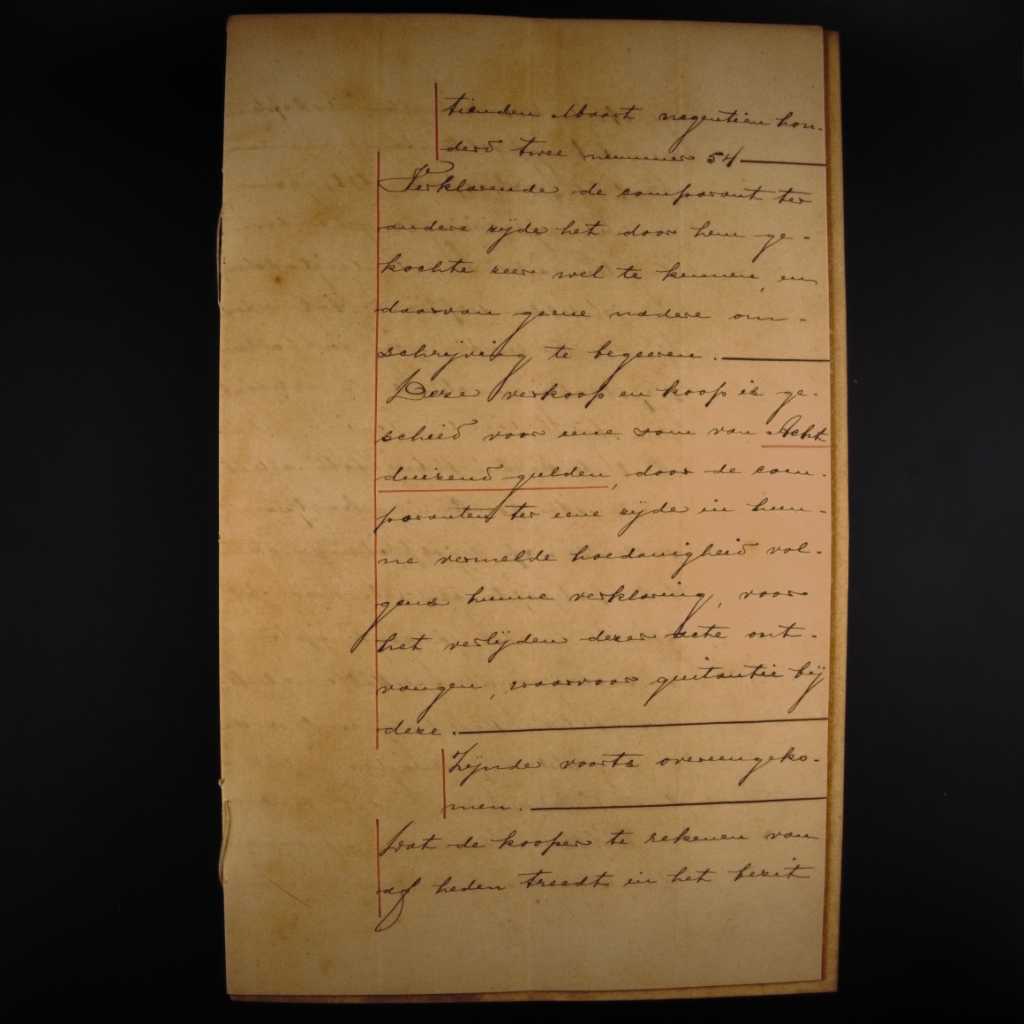 tienden Maart negentien hon-
derd twee nummer 54
Verklarende de comparant ter
andere zijde het door hem ge-
kochte zeer wel te kennen, en
daarvan geene nadere om-
schrijving te begeeren.
Deze verkoop en koop is ge-
schied voor eene som van Acht
duizend gulden, door de com-
paranten ter eene zijde in hun-
ne vermelde hoedanigheid vol-
gens hunne verklaring, voor
het verlijden dezer acte ont-
vangen, waarvoor quitantie bij
deze.
Zijnde voorts overeengeko-
men.
Dat de kooper te rekenen van
af heden treedt in het bezit